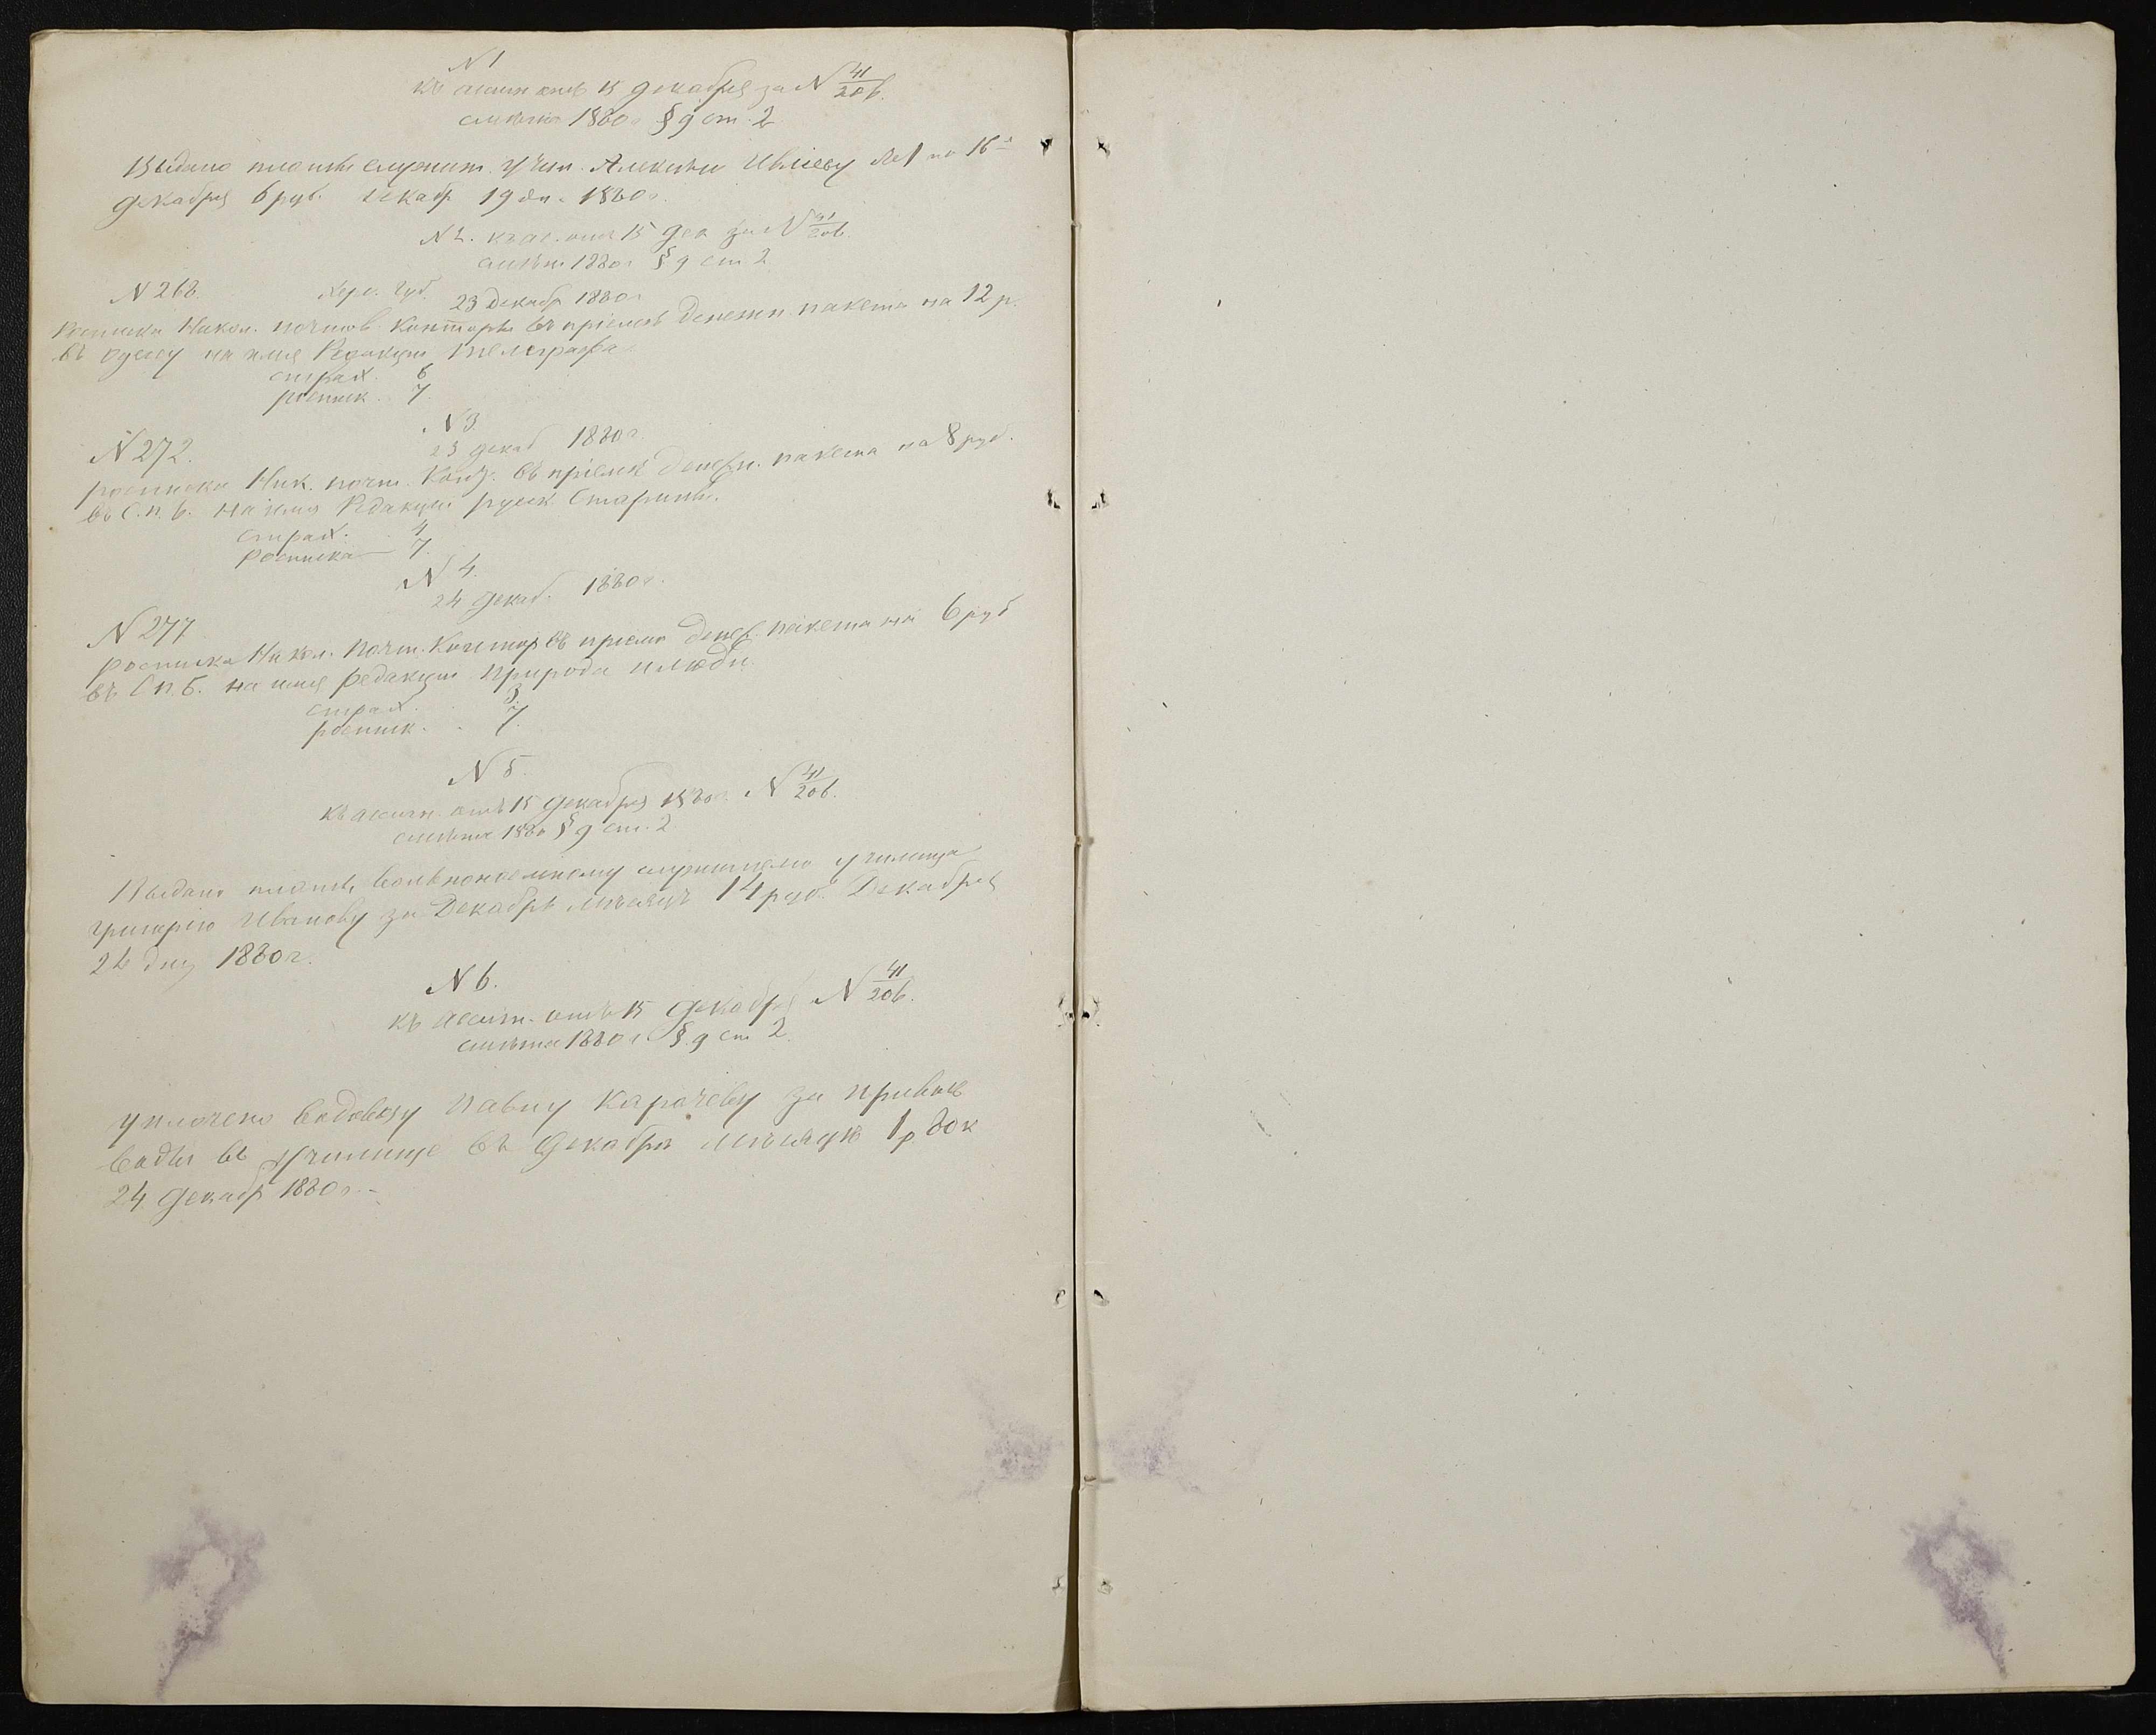 N 1
къ ассигн отъ 15 декабря за N 41/206.
смѣта 1880 г § 9 ст. 2
Выдано платы служит. Учил. Алексѣю Ивлиеву за 1 по 16е
декабря 6 руб. Декабр 19 дн. 1880 г.
N 2. къ ас. отъ 15 дек за N 41/206.
смѣты 1880 г § 9 ст 2
N 268. Хере. Губ. 23 декабр 1880 г
Росписка Никол. почтов. Конторы въ пріемѣ денежн. пакета на 12 р.
въ Одессу на имя Редакціи Телеграфа
страх. 6
росписк. 7.
N 3.
N 272. 23 декаб 1880 г.
росписка Ник. почт. Конт. въ пріемѣ Денежн. пакета на 8 руб.
въ С.п.б. на имя Редакціи русск. Старины.
страх. 4
росписка 7.
N 4.
24 декаб. 1880 г.
N 277
росписка Никол. Почт. Контор въ пріемѣ Денеж. пакета на 6 руб
въ Сп.Б. на имя редакціи природа и люди.
страх. 3.
росписк. 7.
N 5.
къ ассигн. отъ 15 декабря 1880 г. N 41/206.
смѣта 1880 § 9 ст. 2
Выдано платы вольнонаемному служителю училища
григорію Иванову за Декабрь мѣсяцъ 14 руб. Декабря
24 дня 1880 г.
N 6.
къ ассигн. отъ 15 декабря N 41/206.
смѣта 1880 г § 9 ст 2.
уплочено водовозу Павлу Карачеву за привозъ
воды въ училище въ декабрѣ мѣсяцѣ 1 р. 80 к
24 декабр 1880 г.-